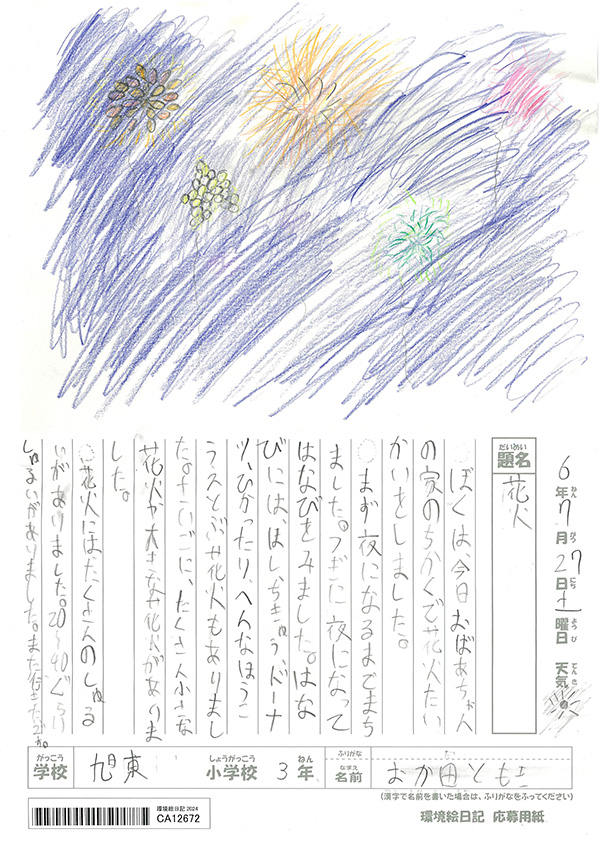 6年7月27日土曜日 天気
ねん がつ にち ようび てんき
だいめい
題名 花火
ぼくは、今日おばあちゃん
の家のちかくで花火たい
かいをしました。
まず夜になるまでまち
ました。つぎに夜になって
はなびをみました。はな
びには、ほし、ちきゅう、ドーナ
ツ、ひかったり、へんなほうこ
うえとぶ花火もありまし
た。さいごに、たくさん小さな
花火や大きな花火がありま
した。
花火にはたくさんのしゅる
いがありました。20~40ぐらい
しゅるいがありました。また行きたいです。
がっこう しょうがっこう ねん なまえ ふりがな
学校 旭東 小学校 3年 名前 おか田とも
(漢字で名前を書いた場合は、ふりがなをふってください)
環境絵日記 応募用紙
環境絵日記 2024
CA12672